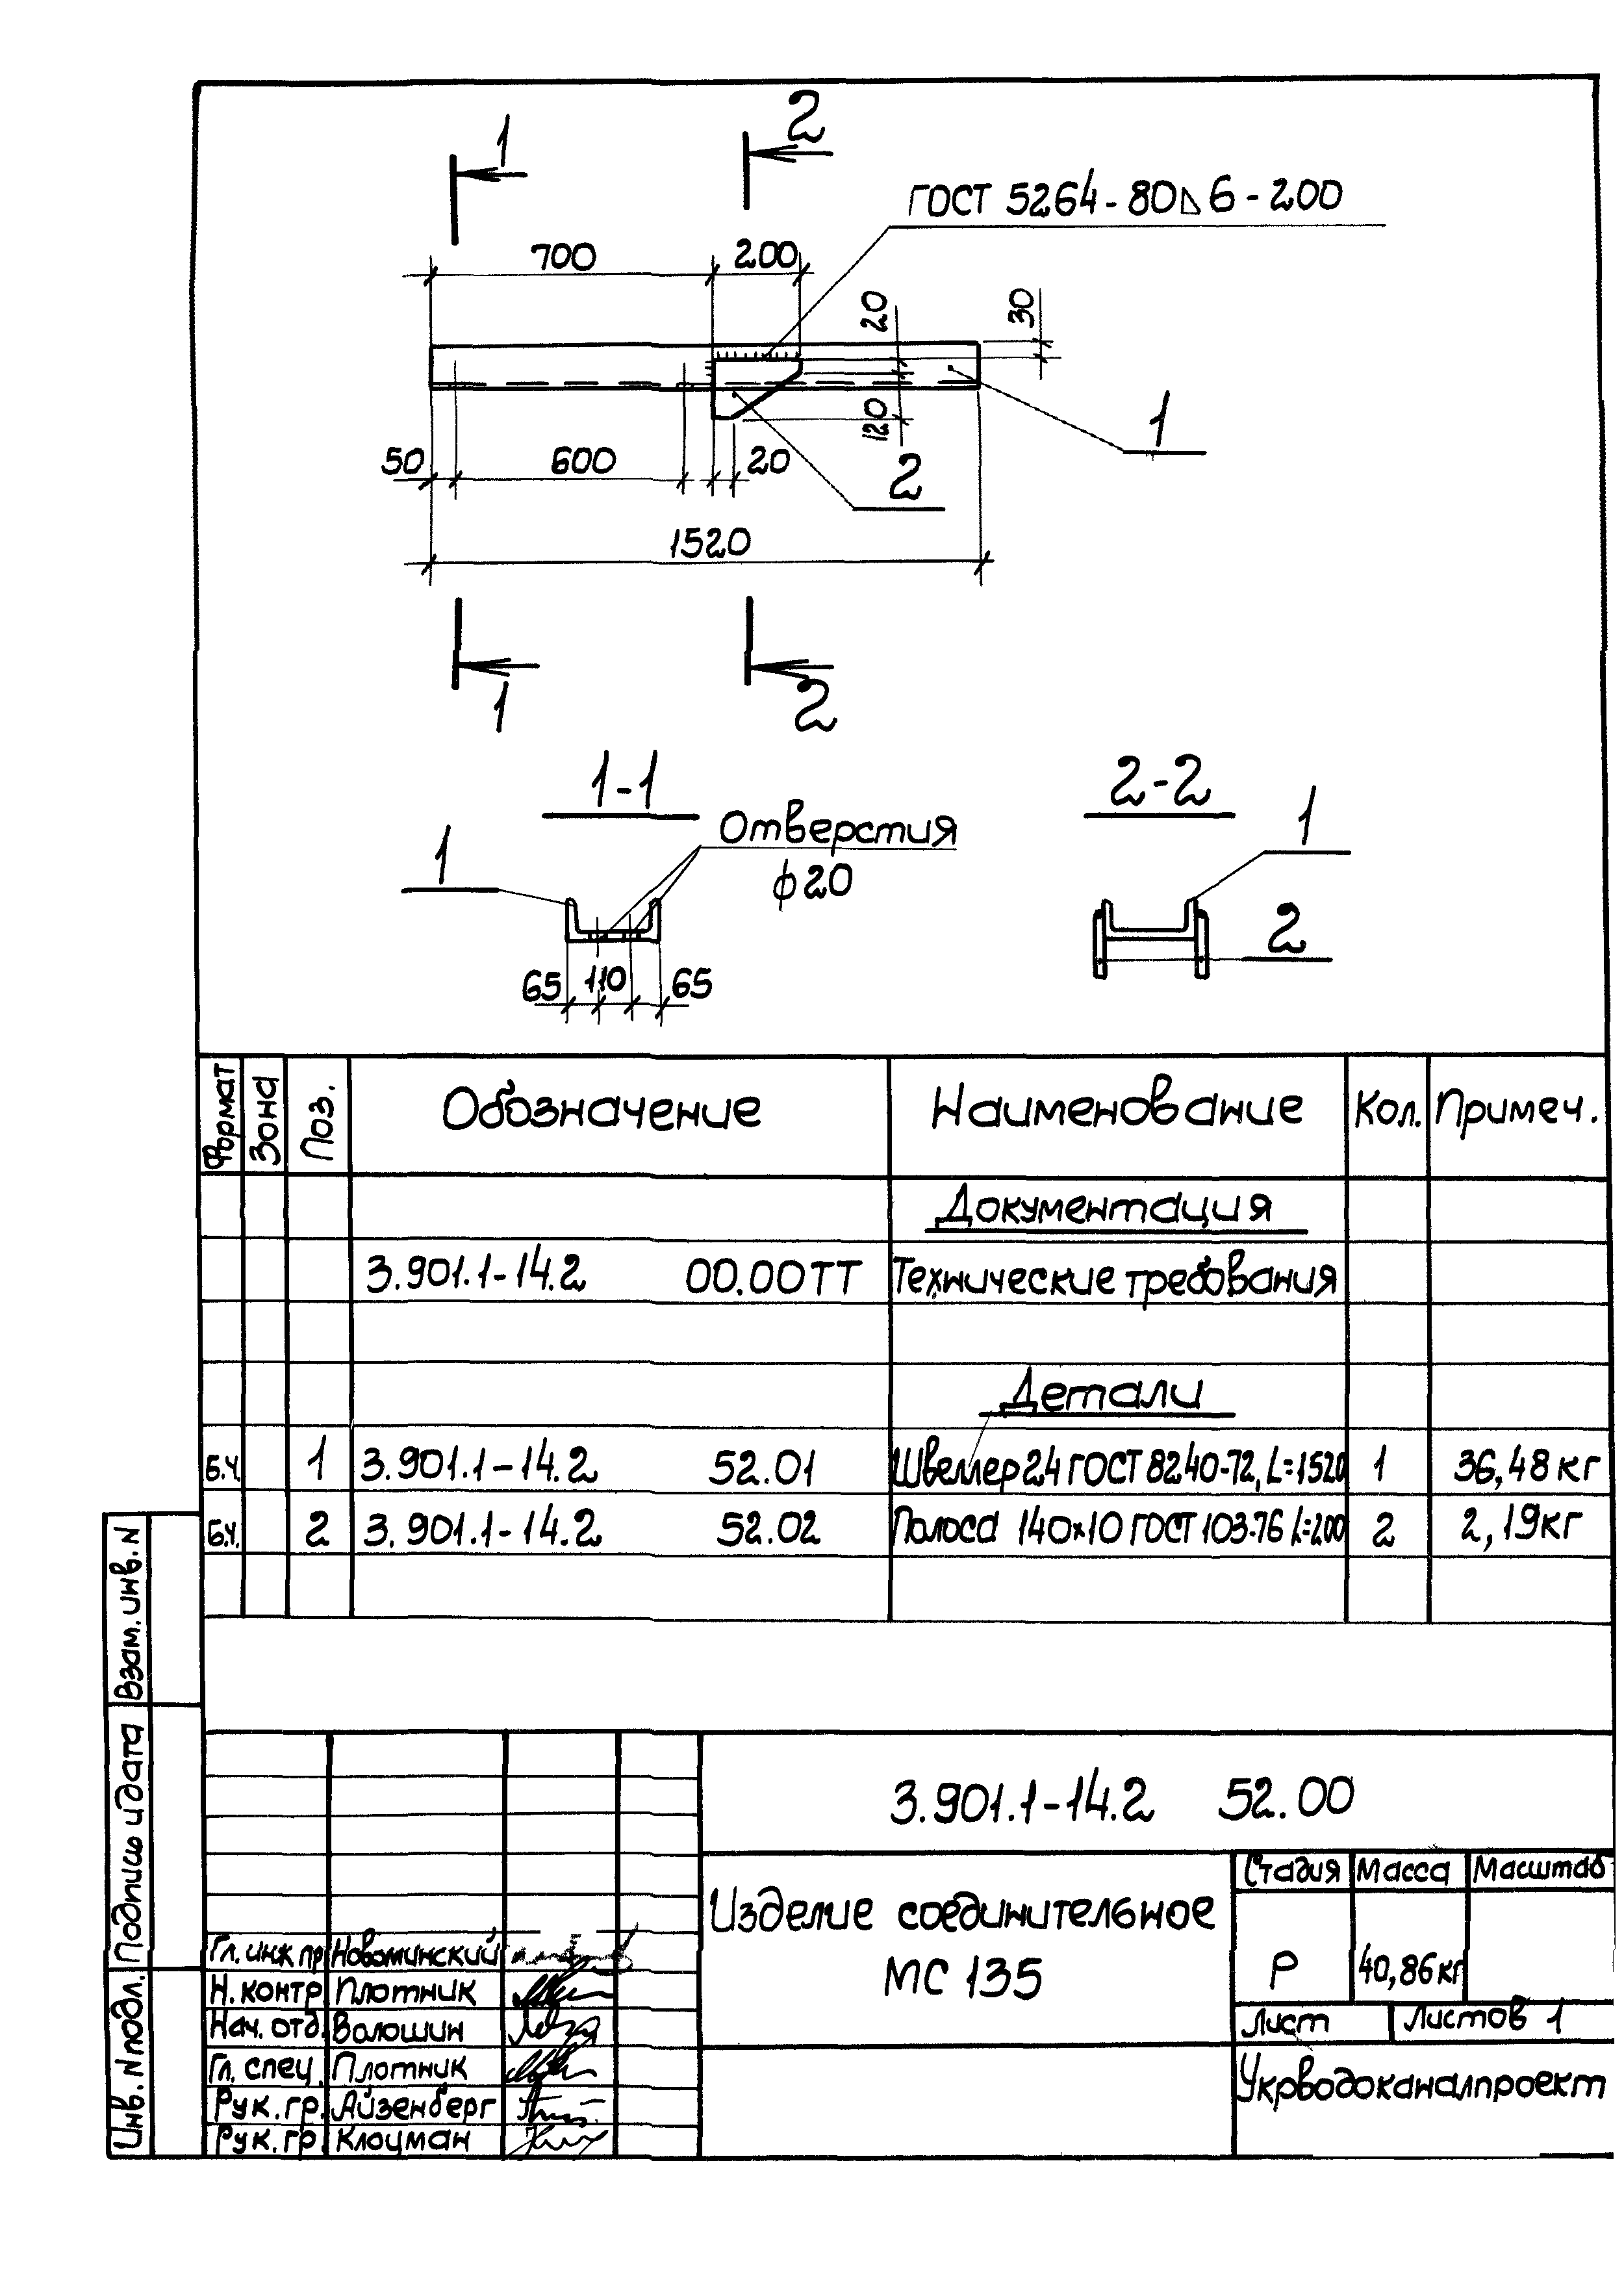 1
2
ГОСТ 5264-80⊿6-200
700
200
20
30
120
1
50
600
20
2
1520
1
2
1-1
2-2
1
Отверстия
ϕ20
1
2
65
110
65
Формат Зона Поз. Обозначение Наименование Кол. Примеч.
Документация
3.901.1-14.2 00.00ТТ Технические требования
Детали
Б.Ч. 1 3.901.1-14.2 52.01 Швеллер 24 ГОСТ 8240-72, L=1520 1 36,48 кг
Б.Ч. 2 3.901.1-14.2 52.02 Полоса 140×10 ГОСТ 103-76 L=200 2 2,19кг
Взам. инв. N
Подпись и дата
Инв. N подл.
3.901.1-14.2 52.00
Изделие соединительное
МС 135
Стадия Масса Масштаб
Р 40,86кг
Лист Листов 1
Укрводоканалпроект
Гл. инж пр. Новоминский
Н. контр. Плотник
Нач. отд. Волошин
Гл. спец. Плотник
Рук. гр. Айзенберг
Рук. гр. Клоцман